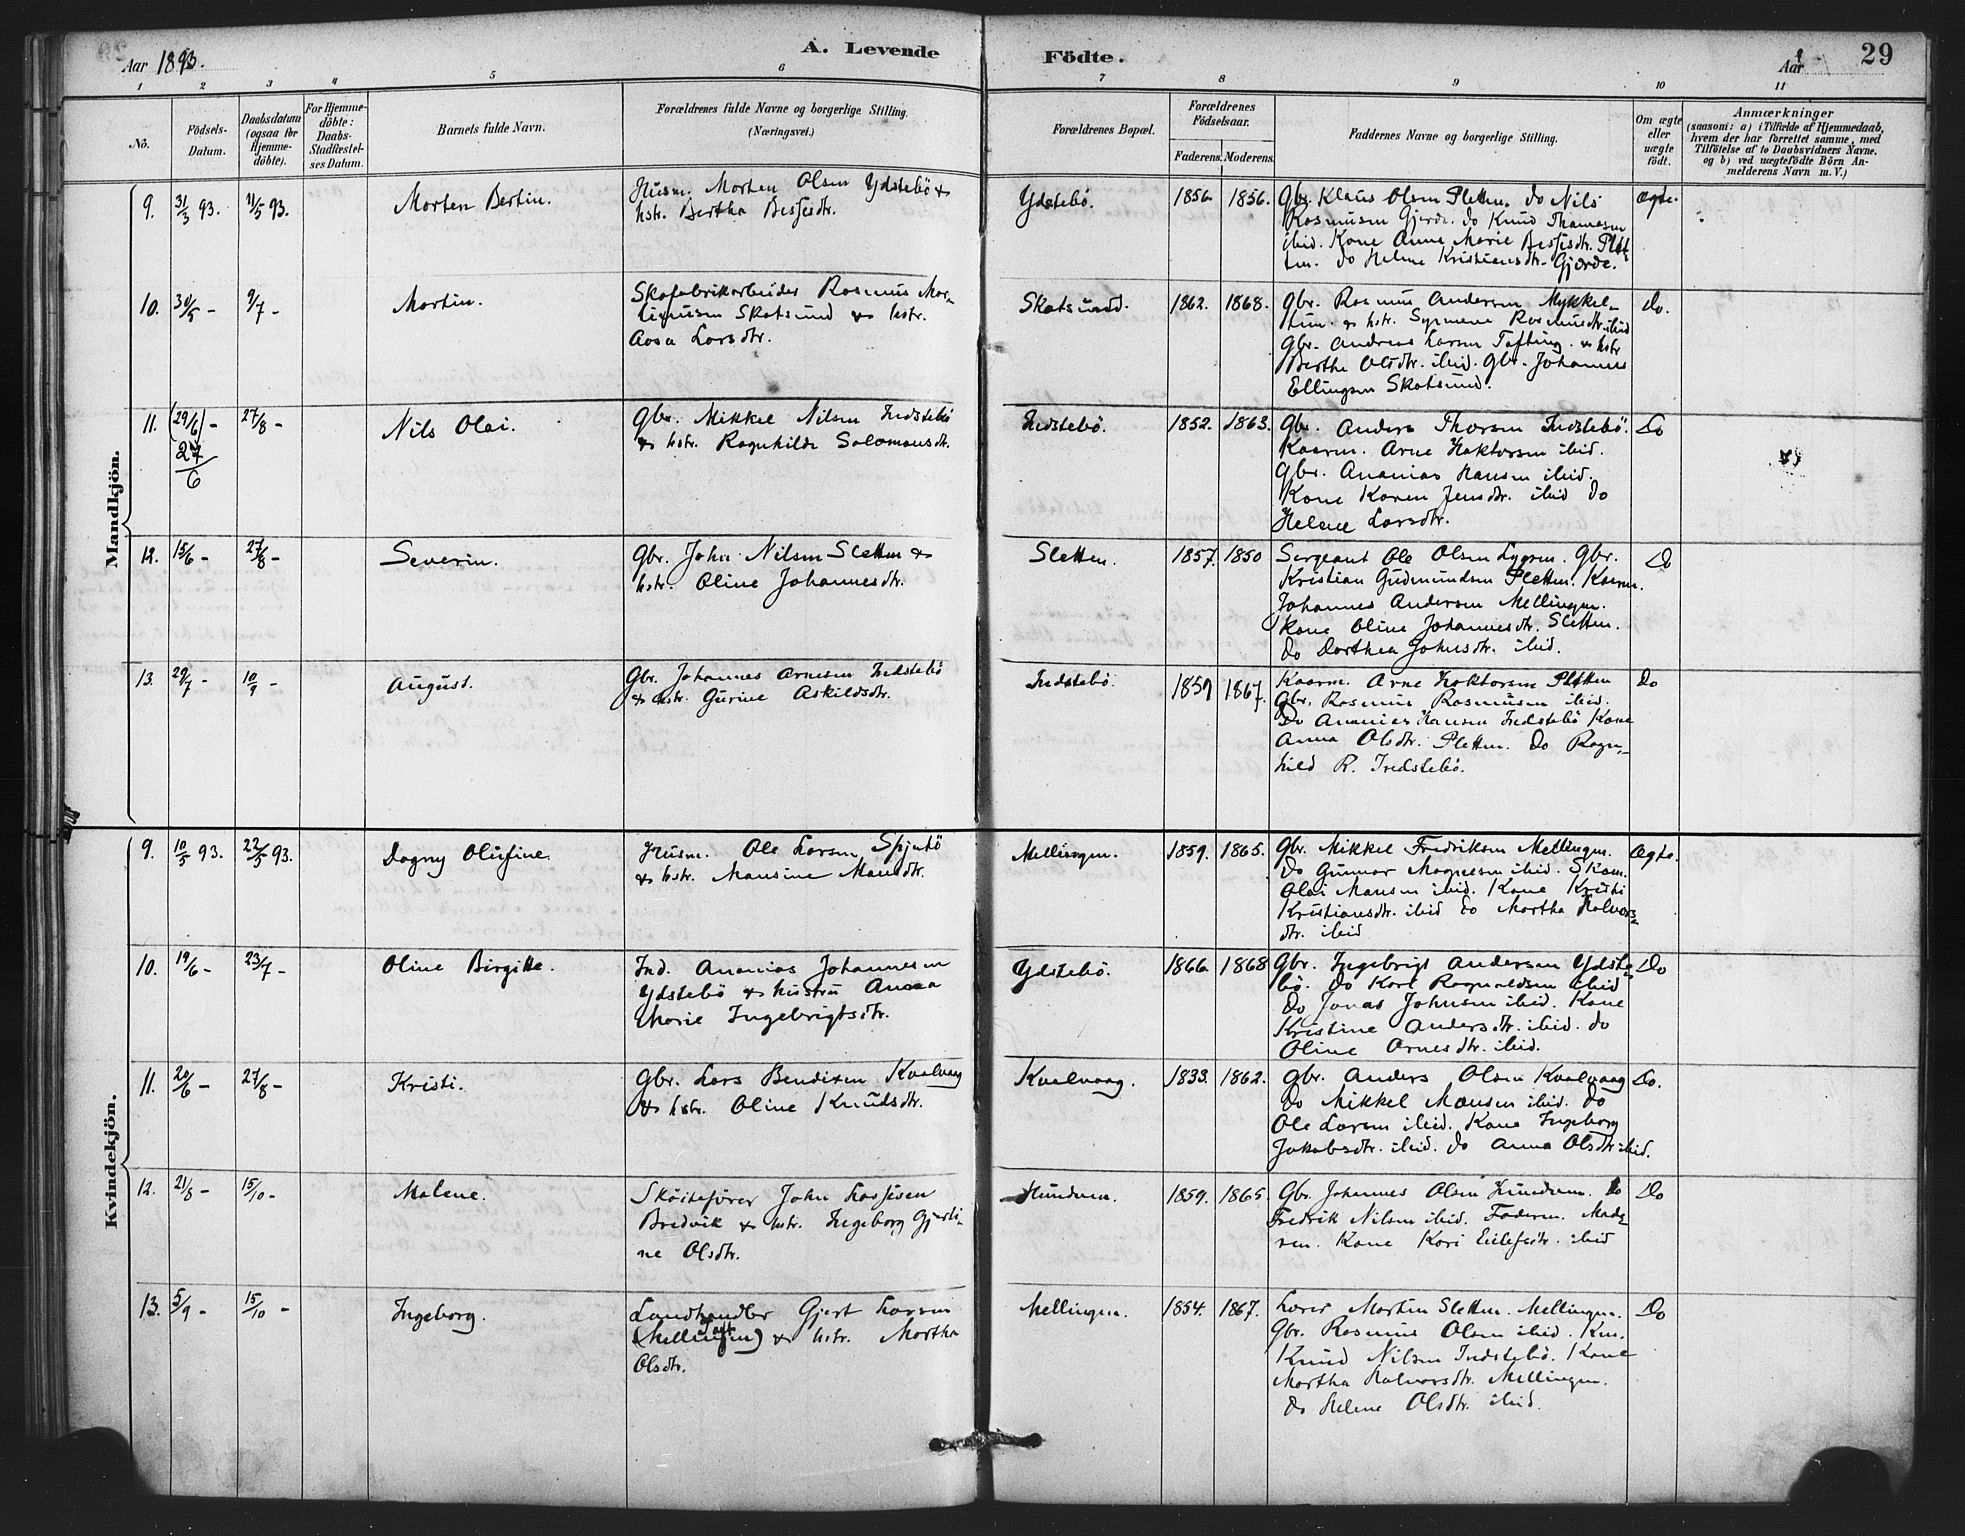 Aar 1893.
A. Levende
Födte.
Aar
29
1 2 3 4 5 6 7 8 9 10 11
No.
Födsels-
Datum.
Daabsdatum
(ogsaa for
Hjemme-
döbte).
For Hjemme-
döbte:
Daabs-
Stadfæstel-
ses Datum.
Barnets fulde Navn.
Forældrenes fulde Navne og borgerlige Stilling.
(Næringsvei.)
Forældrenes Bopæl.
Forældrenes
Födselsaar.
Faderens. Moderens.
Faddernes Navne og borgerlige Stilling.
Om ægte
eller
uægte
födt.
Anmærkninger
(saasom: a) i Tilfælde af Hjemmedaab,
hvem der har forrettet samme, med
Tilföielse af to Daabsvidners Navne.
og b) ved uægtefödte Börn An-
melderens Navn m. V.)
Mandkjön.
9. 31/3 93. 11/5 93. Morten Bertin.
Husm. Morten Olsen Ydstebö &
hstr. Bertha Besfesdtr.
Ydstebö. 1856. 1856.
Gbr. Klaus Olsen Sletten. do Nils
Rasmusen Gjerde. do Knud Thomasen
ibid. Kone Anne Marie Besfesdtr. Slet-
ten. do Helene Kristiansdtr. Gjerde.
Ægte.
10. 30/5 - 9/7 - Martin.
Skofabrikarbeider Rasmus Mar-
tinusen Skotsund & hstr.
Aasa Larsdtr.
Skotsund. 1862. 1868.
Gbr. Rasmus Andersen Mykkel-
tun. & hstr. Synneve Rasmusdtr. ibid
Gbr. Andreas Larsen Tofting. & hstr
Berthe Olsdtr. ibid. Gbr. Johannes
Ellingsen Skotsund.
Do.
11. (29/6) - 27/8 - Nils Olai.
27/6
Gbr. Mikkel Nilsen Indstebö
& hstr. Ragnhilde Salomonsdtr.
Indstebö. 1852. 1863.
Gbr. Anders Thorsen Indstebö.
Kaarm. Arne Haktorsen ibid.
Gbr. Ananias Hansen ibid.
Kone Karen Jensdtr. ibid do
Helene Larsdtr.
Do
12. 15/6 - 27/8 - Severin.
Gbr. John Nilsen Sletten &
hstr. Oline Johannesdtr.
Sletten. 1857. 1850
Sergeant Ole Olsen Lygren. Gbr.
Kristian Gudmundsen Sletten. Kaarm.
Johannes Andersen Mellingen.
Kone Oline Johannesdtr. Sletten.
do Dorthea Johnsdtr. ibid.
Do
13. 29/7 - 10/9 - August.
Gbr. Johannes Arnesen Indstebö
& hstr. Gurine Askildsdtr.
Indstebö. 1859 1867.
Kaarm. Arne Haktorsen Sletten
Gbr. Rasmus Rasmusen ibid.
Do Ananias Hansen Indstebö Kone
Anna Olsdtr. Sletten. do Ragn-
hild R. Indstebö.
Do
Kvindekjön.
9. 10/5 93. 22/5 93. Dagny Olufine.
Husm. Ole Larsen Spjutö
& hstr. Mansine Mansdtr.
Mellingen. 1859. 1865.
Gbr. Mikkel Fredriksen Mellingen.
Do Gunnar Magnesen ibid. Skom.
Olai Mansen ibid. Kone Kristi
Kristiansdtr. ibid do Martha Halvors-
dtr. ibid
Ægte.
10. 19/6 - 23/7 - Oline Birgitte.
Ind. Ananias Johannesen
Ydstebö & hustru Anna
Marie Ingebrigtsdtr.
Ydstebö. 1866. 1868
Gbr. Ingebrigt Andersen Ydste-
bö. do Karl Ragnaldsen ibid
Do Jonas Johnsen ibid. Kone
Kristine Andersdtr. ibid. do
Oline Arnesdtr. ibid.
Do
11. 20/6 - 27/8 - Kristi.
Gbr. Lars Bendixen Kvalvaag
& hstr. Oline Knudsdtr.
Kvalvaag. 1833. 1862.
Gbr. Anders Olsen Kvalvaag
Do Mikkel Monsen ibid. do
Ole Larsen ibid. Kone Ingeborg
Jakobsdtr. ibid. do Anna Olsdtr. ibid.
Do.
12. 21/8 - 15/10 - Malene.
Sköitefører John Lassesen
Bredvik & hstr. Ingeborg Gjerti-
ne Olsdtr.
Hundven. 1859. 1865
Gbr. Johannes Olsen Hundven. do
Fredrik Nilsen ibid. Faderen. Mode-
ren. Kone Kari Eilefsdtr. ibid
Do
13. 5/9 - 15/10 - Ingeborg.
Landhandler Gjert Larsen
(Mellingen) & hstr. Martha
Olsdtr.
Mellingen. 1854. 1867.
Lærer Martin Sletten. Mellingen.
Gbr. Rasmus Olsen ibid.
Knud Nilsen Indstebö. Kone
Martha Halvorsdtr. Mellingen.
Do Helene Olsdtr. ibid.
Do